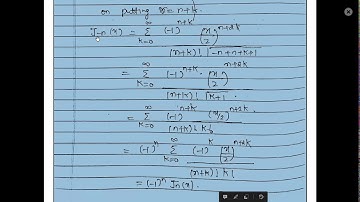 on putting r = n+k.
J-n(x) = ∞∑k=0 (-1)^n+k (x/2)^n+2k / (n+k)! Γ-n+n+k+1
= ∞∑k=0 (-1)^n+k · (x/2)^n+2k / (n+k)! Γk+1
= ∞∑k=0 (-1)^n+k (x/2)^n+2k / (n+k)! k!
= (-1)^n ∞∑k=0 (-1)^k (x/2)^n+2k / (n+k)! k!
= (-1)^n Jn(x).